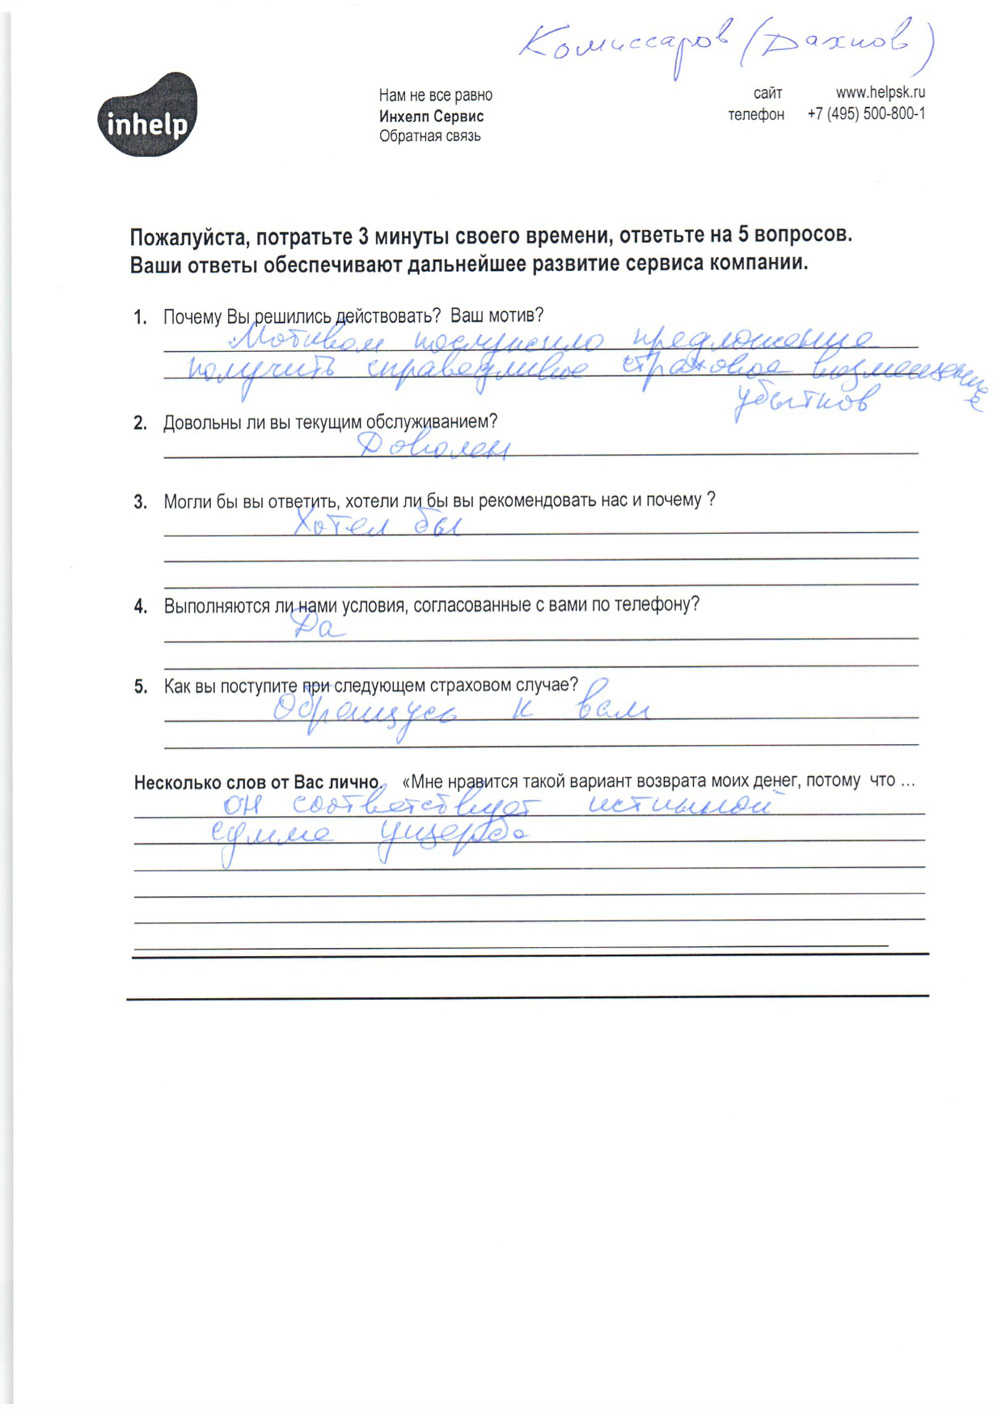 Комиссаров (Дахнов)
inhelp
Нам не все равно
Инхелп Сервис
Обратная связь
сайт www.helpsk.ru
телефон +7 (495) 500-800-1
Пожалуйста, потратьте 3 минуты своего времени, ответьте на 5 вопросов.
Ваши ответы обеспечивают дальнейшее развитие сервиса компании.
1. Почему Вы решились действовать? Ваш мотив?
Мотивом послужило предложение
получить справедливое страховое возмещение
убытков
2. Довольны ли вы текущим обслуживанием?
Доволен
3. Могли бы вы ответить, хотели ли бы вы рекомендовать нас и почему ?
Хотел бы
4. Выполняются ли нами условия, согласованные с вами по телефону?
Да
5. Как вы поступите при следующем страховом случае?
Обращусь к вам
Несколько слов от Вас лично. «Мне нравится такой вариант возврата моих денег, потому что ...
он соответствует истинной
сумме ущерба